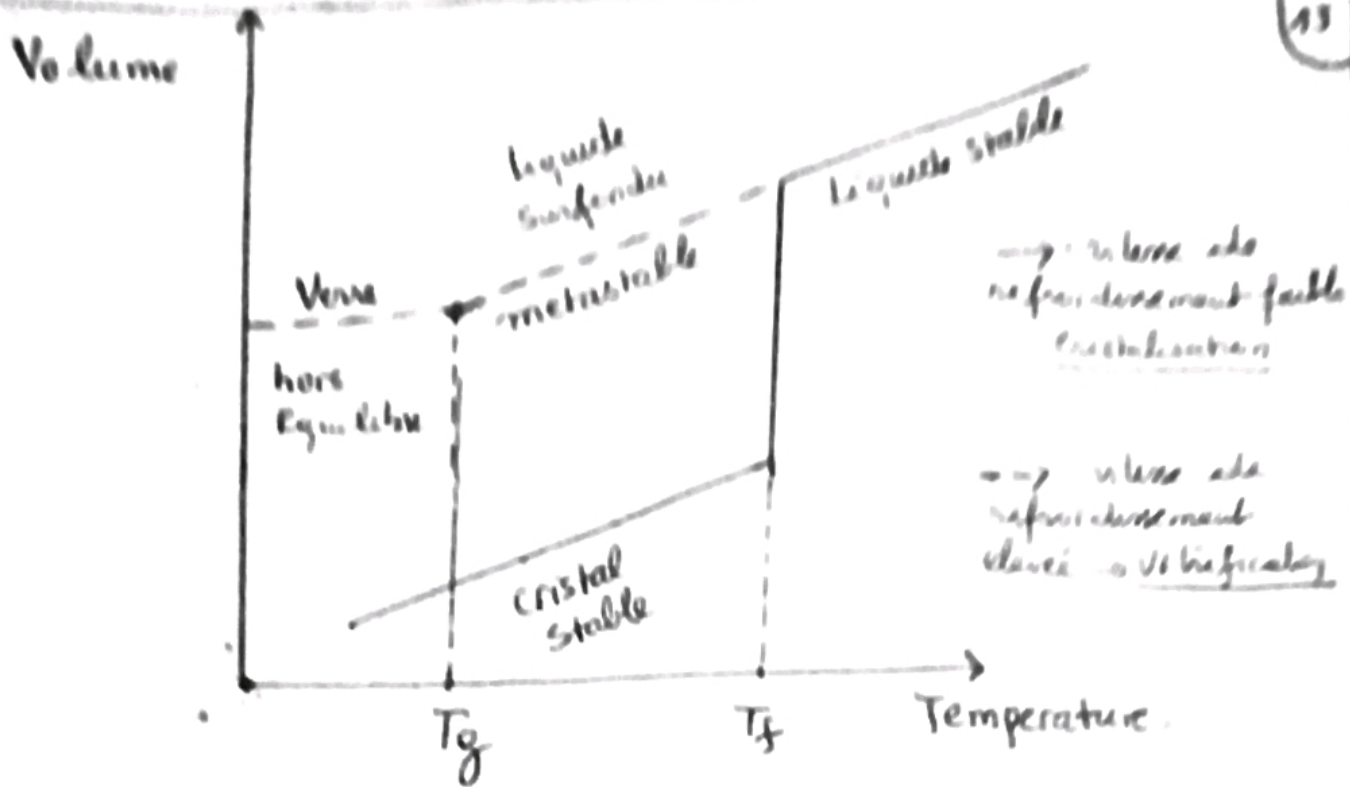 13
Volume
Liquide
surfendu
métastable
Liquide stable
Verre
hors
Equilibre
cristal
stable
Tg
Tf
Temperature
→ vitesse de
refroidissement faible
cristalisation
--→ vitesse de
refroidissement
elevée → Vitrification